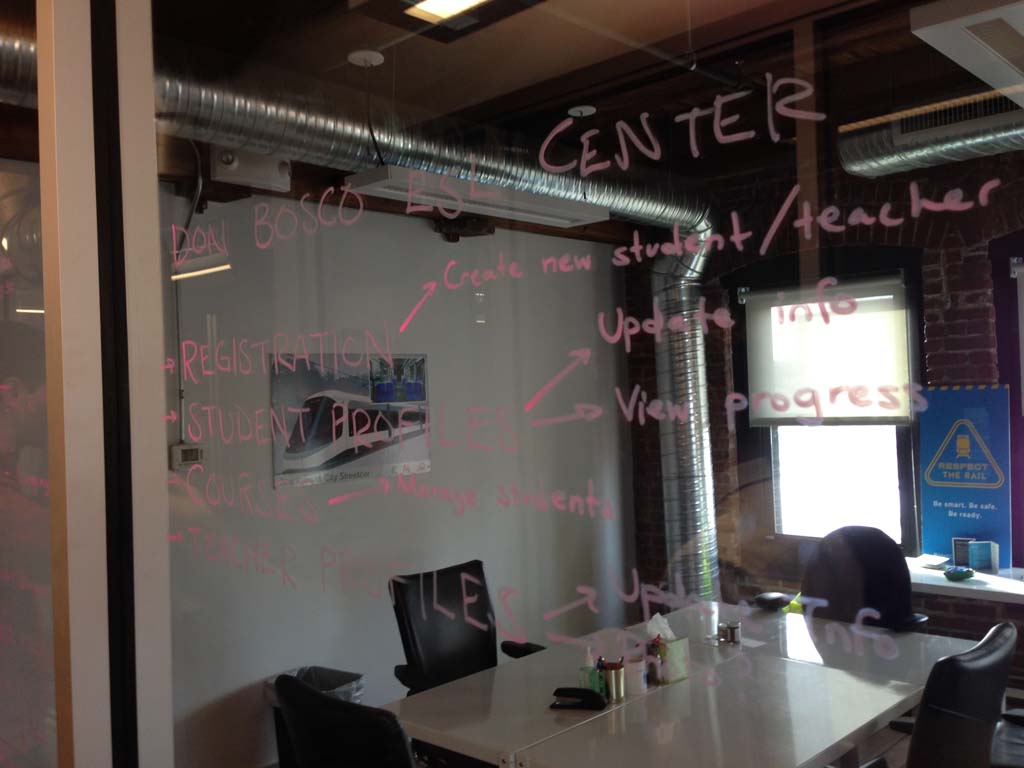 DON BOSCO ESL CENTER
→ REGISTRATION → Create new student/teacher
→ STUDENT PROFILES → Update info
→ View progress
→ COURSES → Manage students
→ TEACHER PROFILES → Update Info
City Streetcar
RESPECT
THE RAIL
Be smart. Be safe.
Be ready.